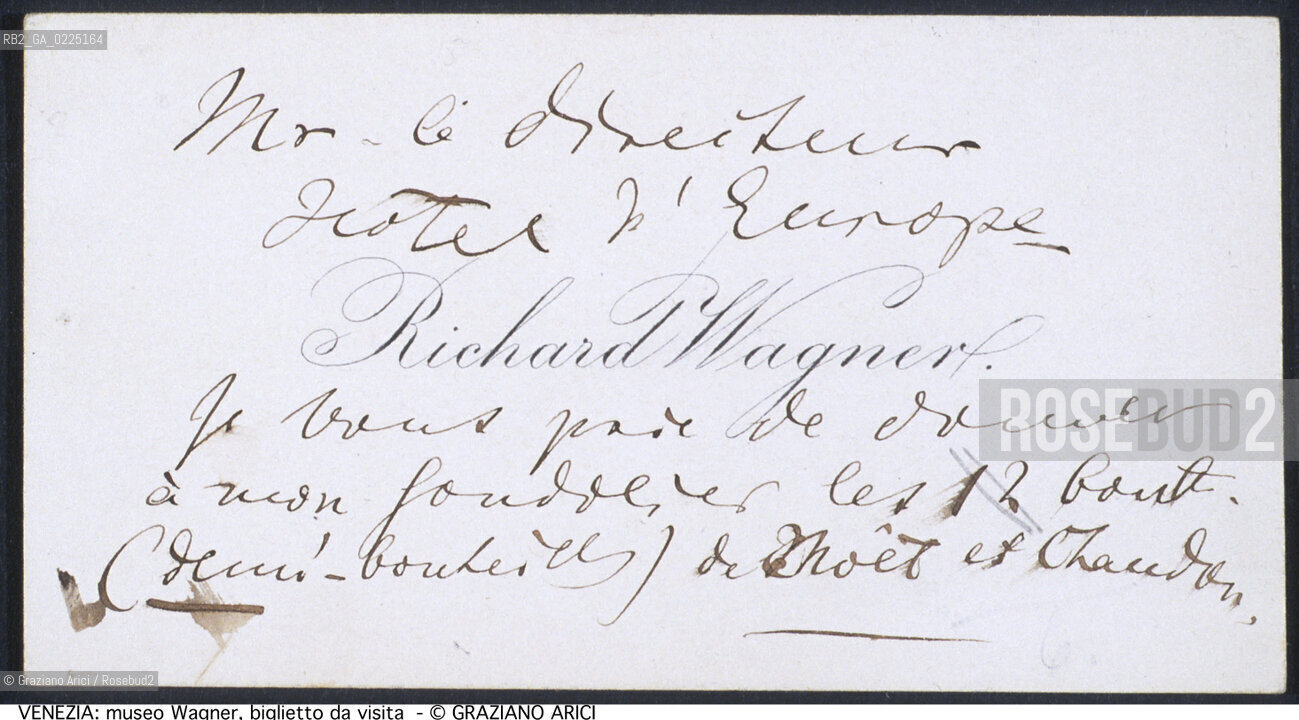 RB2_GA_0225164
Mr - le directeur
Hôtel d' Europe
Richard Wagner.
Je vous prie de donner
à mon gondolier les 12 bout.
(demi-bouteilles) de Moët et Chandon.
ROSEBUD2
© Graziano Arici / Rosebud2
VENEZIA: museo Wagner, biglietto da visita - © GRAZIANO ARICI